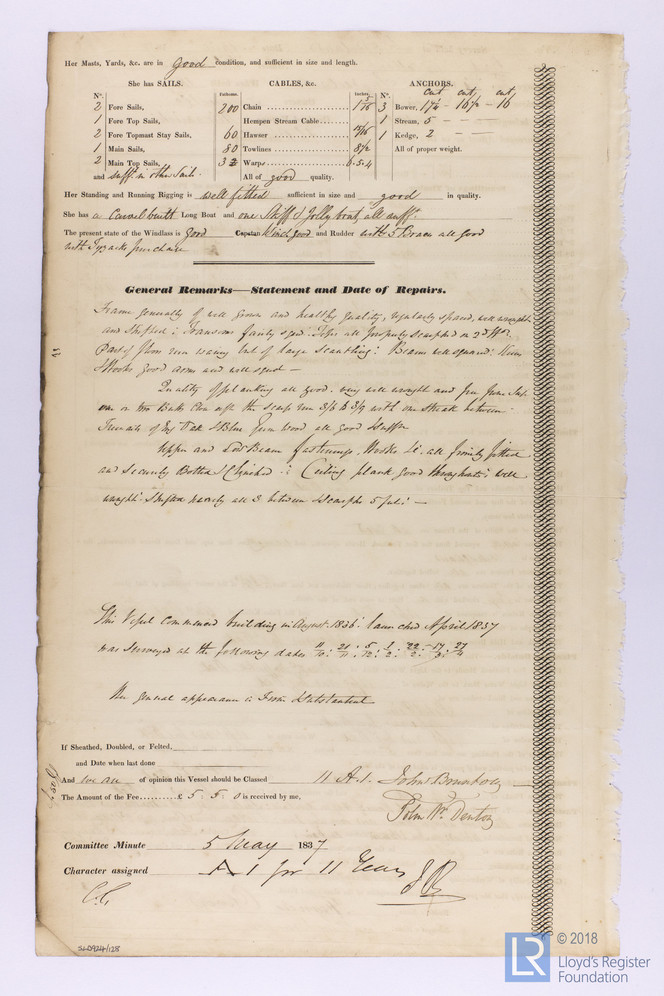 Her Masts, Yards, &c. are in good condition, and sufficient in size and length.
She has SAILS.
Nº.
2 Fore Sails,
1 Fore Top Sails,
2 Fore Topmast Stay Sails,
1 Main Sails,
2 Main Top Sails,
and suff. in other Sails.
CABLES, &c.
Fathoms. Inches.
200 Chain 1 5/16
Hempen Stream Cable
60 Hawser
80 Towlines 8½
Warps 6.5.4
All of good quality.
ANCHORS.
Nº. cwt cwt, cwt,
3 Bower, 17¼ - 16½ - 16
1 Stream, 5
1 Kedge, 2
All of proper weight.
Her Standing and Running Rigging is well fitted sufficient in size and good in quality.
She has a Carvel built Long Boat and one Skiff & Jolly boat all suff.
The present state of the Windlass is good Capstan good and Rudder with 5 Braces all good
with
General Remarks—Statement and Date of Repairs.
Frame generally of well grown and healthy quality, regularly spaced, well wrought
and Shifted; Transoms fairly
Part of floor waney but of large scantling: Beams well squared:
Hooks good and well
Quality of planking all good. very well wrought and free from Sap
one or two Butts aft the 3/6 to 3/9 with one Streak between
Treenails of Eng Oak & Blue Gum Wood all good
Upper and Low Beam fastenings, Hooks &c all firmly fitted
and securely Bolted & Clenched: Ceiling plank good throughout: well
wrought: Shifted nearly all 3 between & scarphs 5 ful: —
This Vessel Commenced building in August 1836: launched April 1837
was Surveyed at the following dates 11/10: 21/11: 5/12: 1/2: 22/2: 17/3: 27/4
Her general appearance is Substantial
If Sheathed, Doubled, or Felted,
and Date when last done
And we are of opinion this Vessel should be Classed 11 A.1. John
The Amount of the Fee £ 5 5 0 is received by me,
John Wm. Denton
Committee Minute 5 May 1837
Character assigned A 1 for 11 Years
SLD924/128
LR
© 2018
Lloyd's Register
Foundation